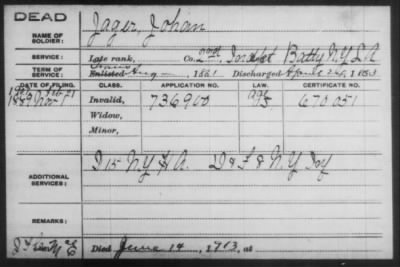 DEAD
NAME OF SOLDIER: Jager, Johan
SERVICE: Late rank, Co. Indpt Batty N.Y. L.A
TERM OF SERVICE: Enlisted Aug 1861 Discharged 1863
DATE OF FILING. CLASS. APPLICATION NO. LAW. CERTIFICATE NO.
1889 Nov Invalid, 736900 670051
Widow,
Minor,
ADDITIONAL SERVICES: D 15 N.Y. H A. D & F 8 N.Y. Inf
REMARKS:
Died June 14, 1913, at